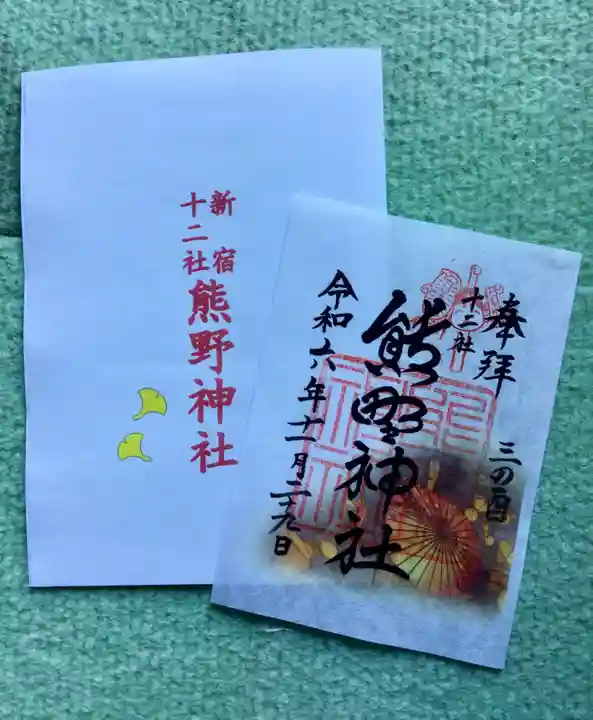 新宿
十二社
熊野神社
奉拝
三の酉
十二社
熊野神社
令和六年十一月二十九日